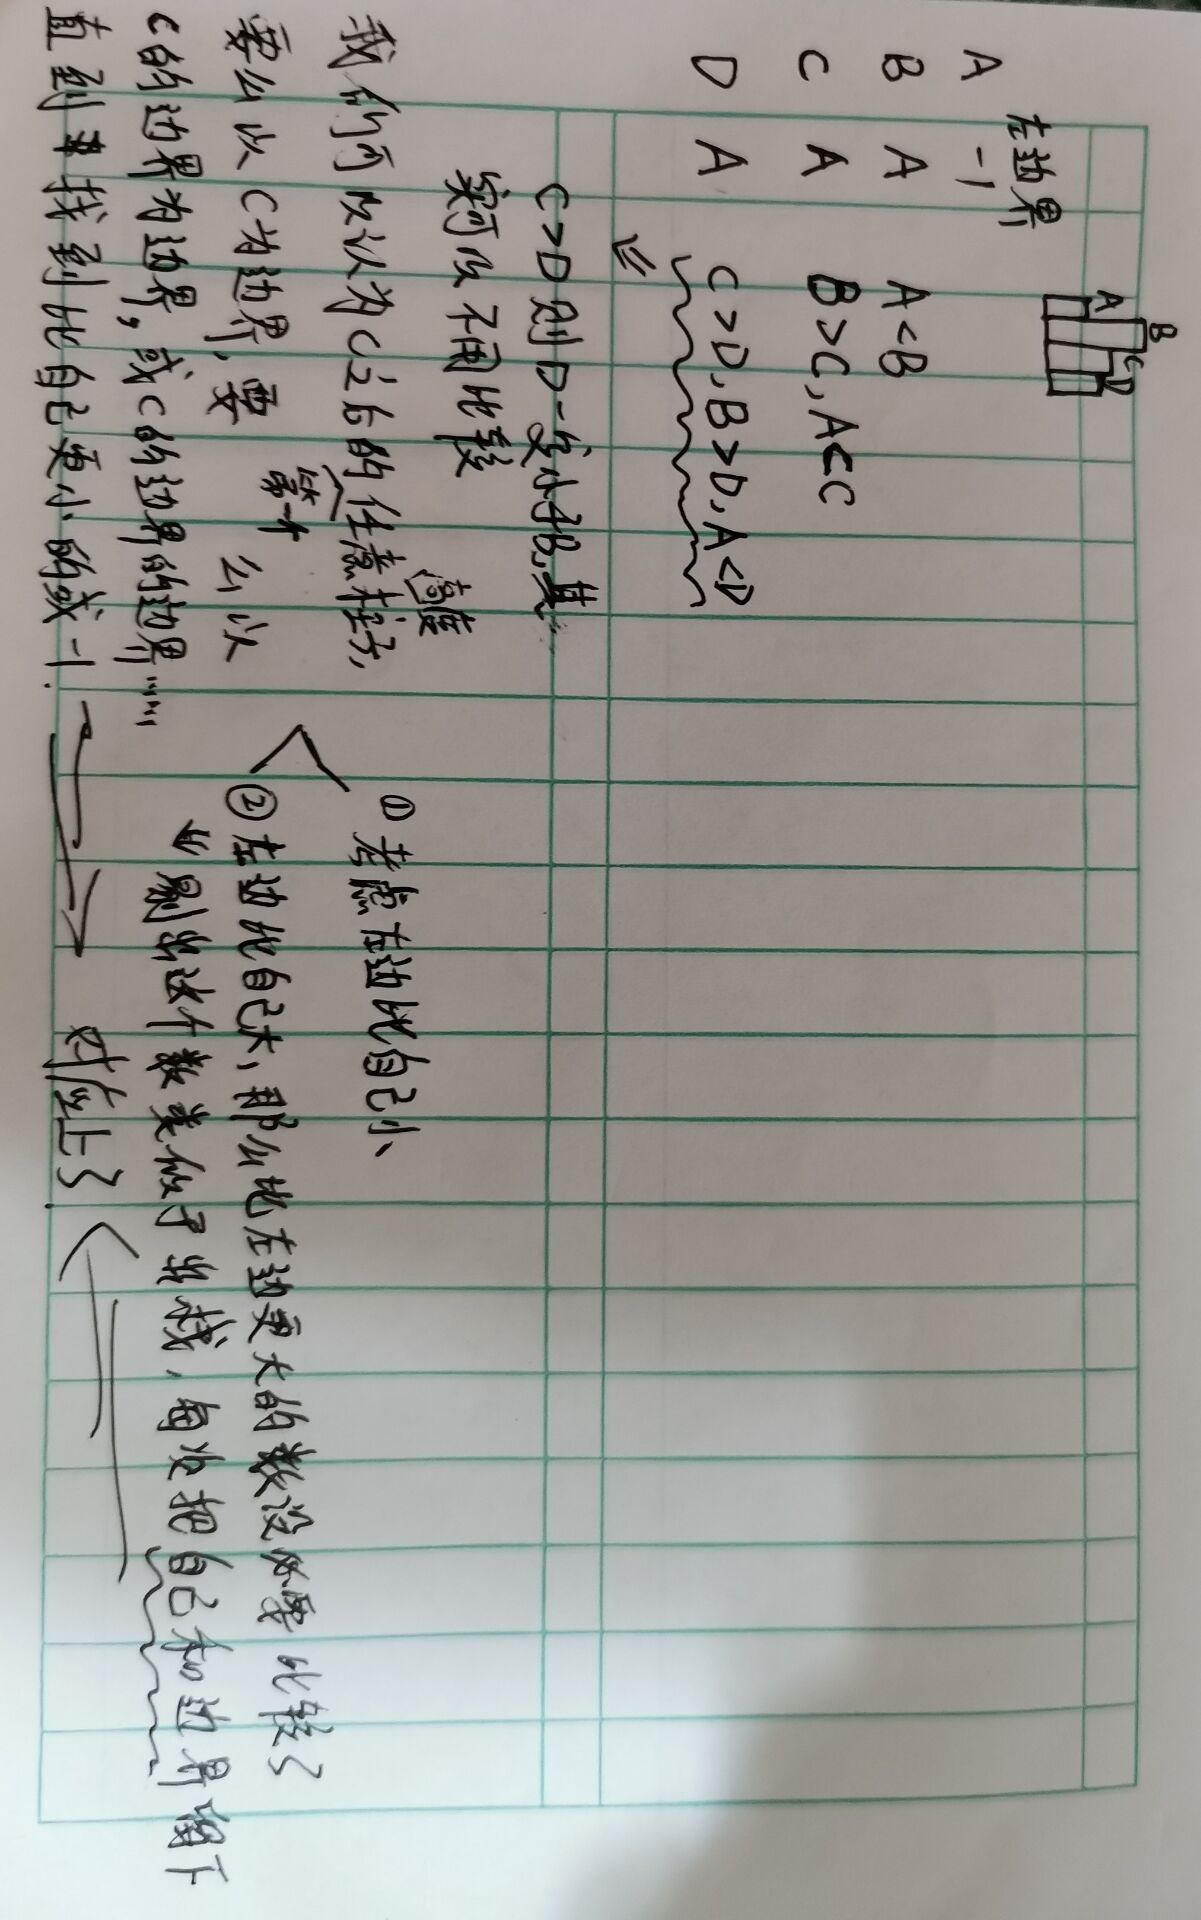 左边界
A B C D
A -1
B A A<B
C A B>C, A<C
D A C>D, B>D, A<D
C>D 则 D一定小于B,其
实可以不用比较
我们可以认为C之后的任意柱子,
高度
第一个
要么以C为边界,要么以
C的边界为边界,或C的边界的边界……
直到找到比自己更小的或-1.
①考虑左边比自己小
②左边比自己大,那么比左边更大的数没必要比较了
剔出这个数类似于出栈,每次把自己和边界留下
对应上了